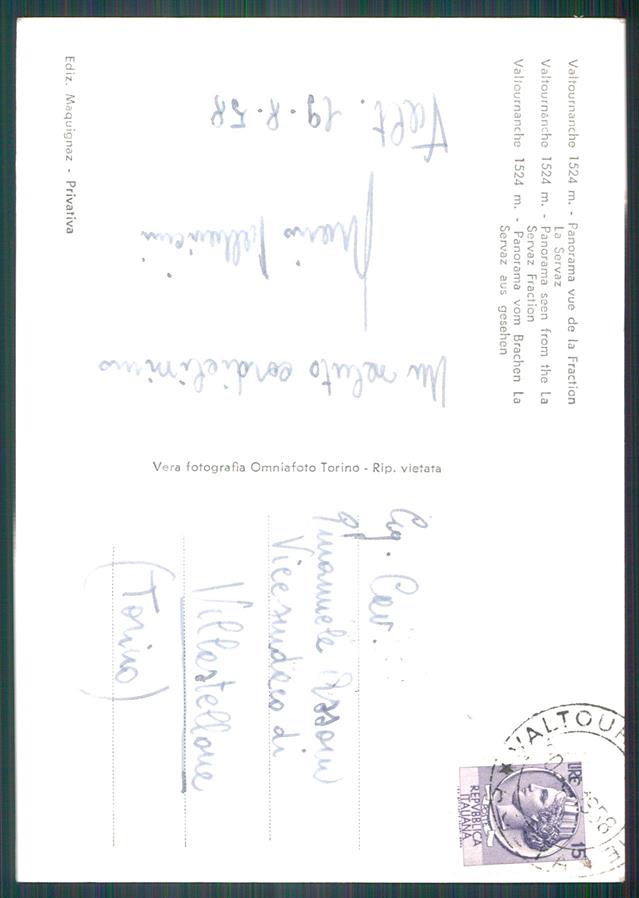 Valtournanche 1524 m. - Panorama vue de la Fraction
La Servaz
Valtournanche 1524 m. - Panorama seen from the La
Servaz Fraction
Valtournanche 1524 m. - Panorama vom Brachen La
Servaz aus gesehen
Valt. 19.8.58
Un saluto
Mario
Ediz. Maquignaz - Privativa
Vera fotografia Omniafoto Torino - Rip. vietata
Cav.
Vicesindaco di
Villastellone
(Torino)
VALTOUR
1958
LIRE 15
POSTE
REPVBBLICA
ITALIANA